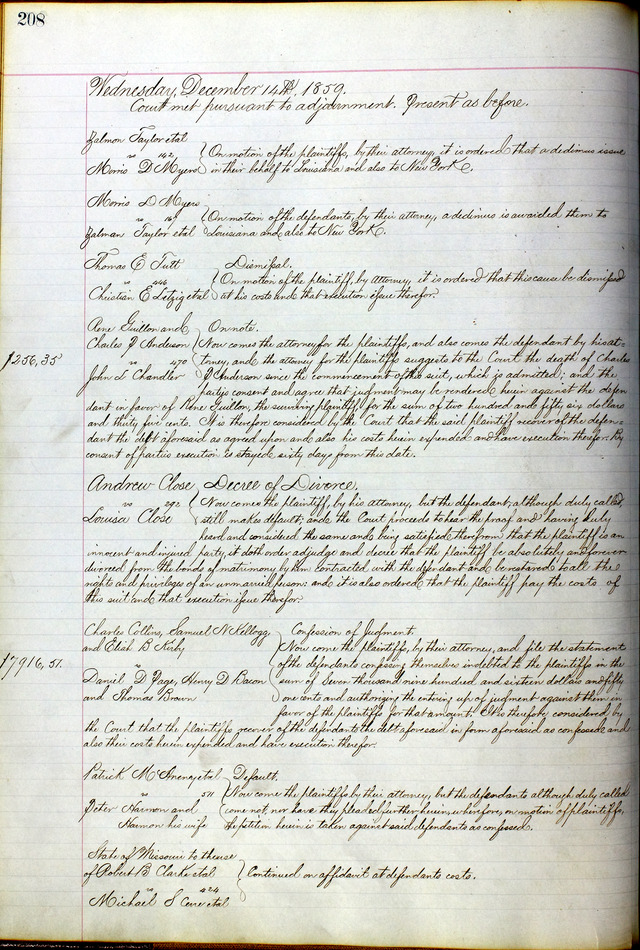 208
Wednesday, December 14th, 1859.
Court met pursuant to adjournment. Present as before.
Zalmon Taylor et al
vs 142
Morris D Myers
On motion of the plaintiffs, by their attorney, it is ordered that a dedimus issue
in their behalf to Louisiana and also to New York.
Morris D Myers
vs
Zalman Taylor et al
On motion of the defendants, by their attorney, a dedimus is awarded them to
Louisiana and also to New York.
Thomas E Tutt
vs
Christian E et al
Dismissal.
On motion of the plaintiff, by attorney, it is ordered that this cause be dismissed
at his costs and that execution issue therefor.
Rene Guillon and
Charles P Anderson
vs 470
John T Chandler
$256,35
On note.
Now comes the attorney for the plaintiffs, and also comes the defendant by his at=
torney, and the attorney for the plaintiffs suggests to the Court the death of Charles
P Anderson since the commencement of this suit, which is admitted; and the
parties consent and agree that judgment may be rendered herein against the defen
dant in favor of Rene Guillon, the surviving plaintiff for the sum of two hundred and fifty six dollars
and thirty five cents. It is therefore considered by the Court that the said plaintiff recover of the defen=
dant the debt aforesaid as agreed upon and also his costs herein expended and have execution therefor. By
consent of parties execution is stayed sixty days from this date.
Andrew Close
vs 292
Louisa Close
Decree of Divorce.
Now comes the plaintiff, by his attorney, but the defendant, although duly called,
still makes default; and the Court proceeds to hear the proof and having duly
heard and considered the same and being satisfied therefrom that the plaintiff is an
innocent and injured party, it doth order adjudge and decree that the plaintiff be absolutely and forever
divorced from the bonds of matrimony by him contracted with the defendant and be restored to all the
rights and privileges of an unmarried person: and it is also ordered that the plaintiff pay the costs of
this suit and that execution issue therefor.
Charles Collins, Samuel N Kellogg,
and Elish B Kirby
vs
Daniel D Page, Henry D Bacon
and Thomas Brown
$7916,51.
Confession of Judgment.
Now come the plaintiffs, by their attorney, and file the statement
of the defendants confessing themselves indebted to the plaintiffs in the
sum of Seven thousand nine hundred and sixteen dollars and fifty
one cents and authorizing the entering up of judgment against them in
favor of the plaintiffs for that amount. It is therefore considered by
the Court that the plaintiffs recover of the defendants the debt aforesaid in form aforesaid as confessed and
also their costs herein expended and have execution therefor.
Patrick et al
vs 511
Peter Harmon and
Harmon his wife
Default.
Now come the plaintiffs by their attorney, but the defendants although duly called
come not, nor have they pleaded further herein, wherefore, on motion of plaintiffs,
the petition herein is taken against said defendants as confessed.
State of Missouri to the use
of Robert B Clark et al
vs 424
Michael S Cere et al
Continued on affidavit at defendants costs.